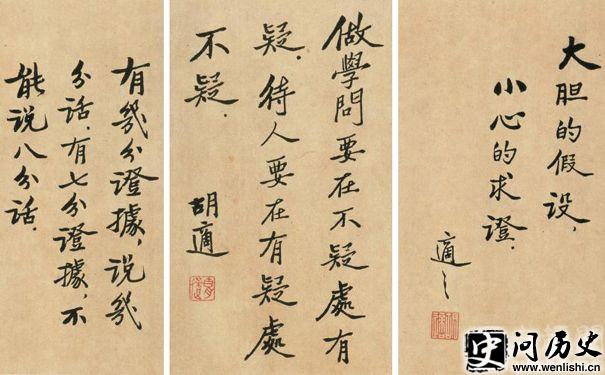 大胆的假设,
小心的求證.
適之
做學問要在不疑處有
疑.待人要在有疑處
不疑.
胡適
有幾分證據,說幾
分話.有七分證據,不
能说八分話.
问历史
www.wenlishi.cn